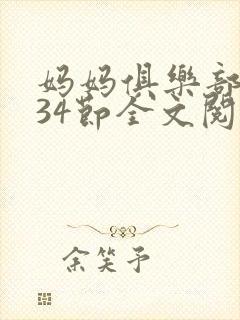 妈妈俱樂部
34節全文閱
余笑予